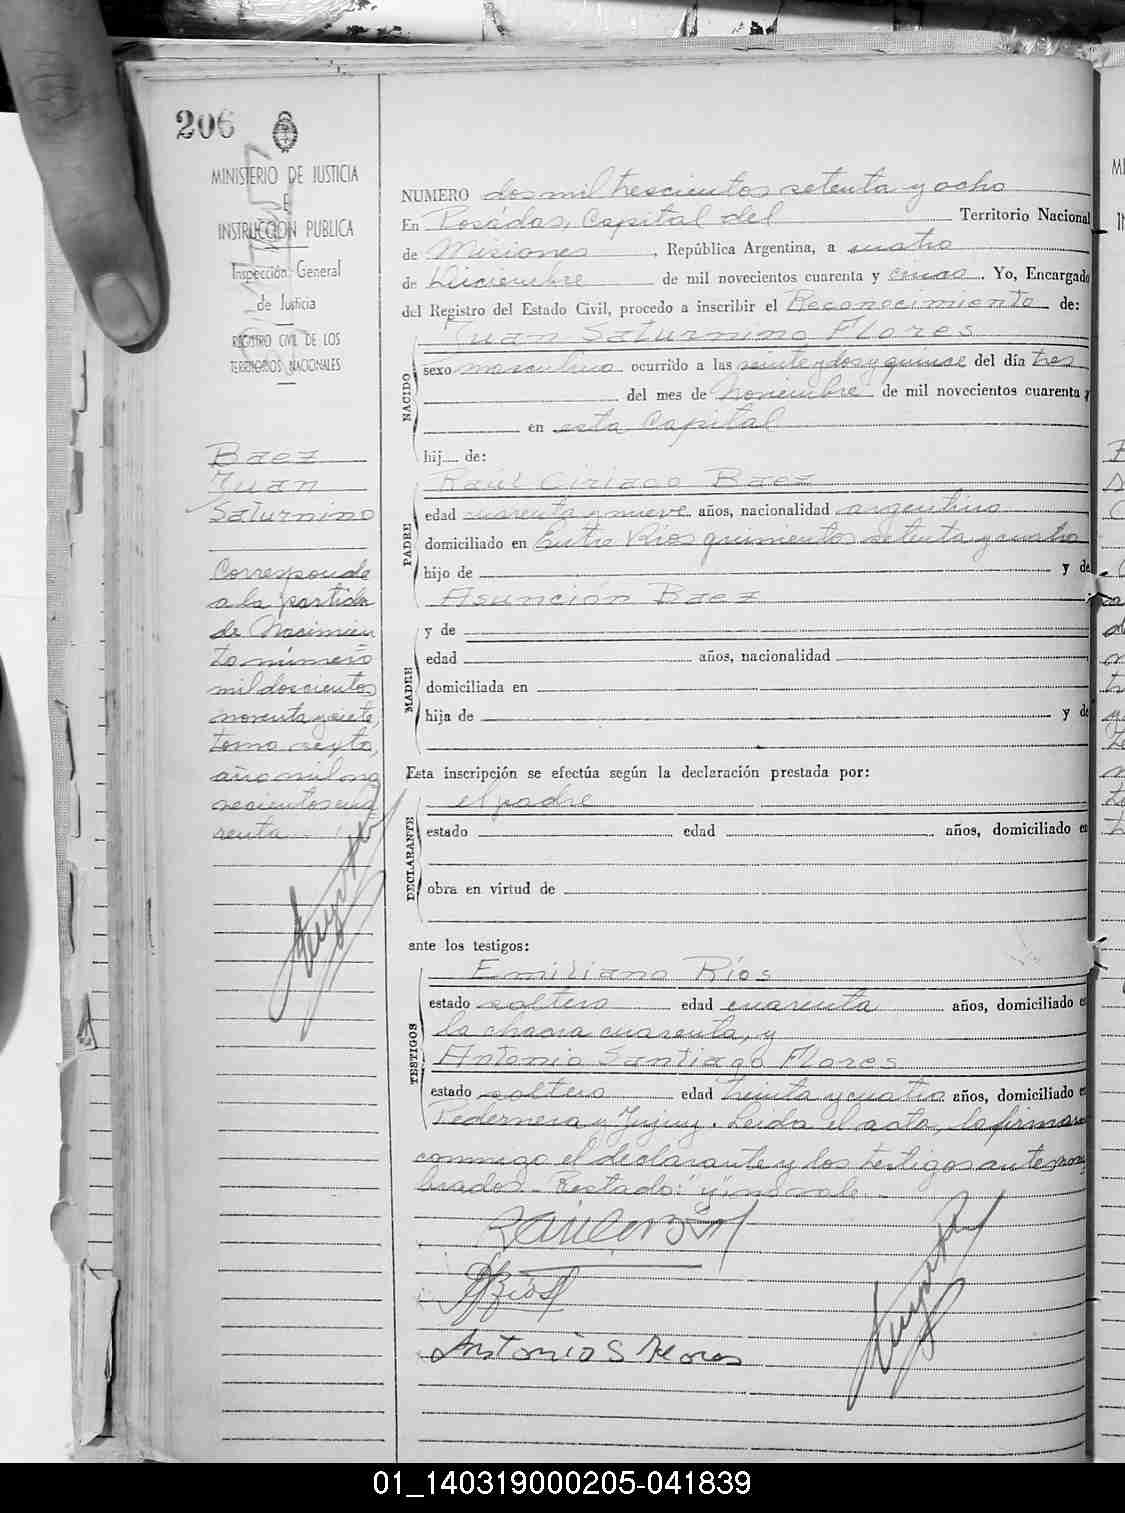 206
MINISTERIO DE JUSTICIA
E
INSTRUCCION PUBLICA
Inspección General
de Justicia
REGISTRO CIVIL DE LOS
TERRITORIOS NACIONALES
Baez
Juan
Saturnino
Corresponde
a la partida
de Nacimien
to número
mil doscientos
noventa y siete
tomo sexto,
año mil no
vecientos cua
renta.
NUMERO dos mil trescientos setenta y ocho
En Posádas, Capital del Territorio Nacional
de Misiones, República Argentina, a cuatro
de Diciembre de mil novecientos cuarenta y cinco. Yo, Encargado
del Registro del Estado Civil, procedo a inscribir el Reconocimiento de:
NACIDO
Juan Saturnino Flores
sexo masculino ocurrido a las veinte y dos y quince del día tres
del mes de Noviembre de mil novecientos cuarenta y
en esta Capital
hij de:
PADRE
Raúl Ciriaco Baez
edad cuarenta y nueve años, nacionalidad argentino
domiciliado en Entre Rios quinientos setenta y cuatro
hijo de y de
Asunción Baez
MADRE
y de
edad años, nacionalidad
domiciliada en
hija de y de
Esta inscripción se efectúa según la declaración prestada por:
DECLARANTE
el padre
estado edad años, domiciliado en
obra en virtud de
ante los testigos:
TESTIGOS
Emiliano Ríos
estado soltero edad cuarenta años, domiciliado en
la chacra cuarenta, y
Antonio Santiago Flores
estado soltero edad treinta y cuatro años, domiciliado en
Pedernera y Jujuy. Leida el acta, la firmaron
conmigo el declarante y los testigos antes nom
brados. - Testado: "y" no vale. -
Antonio S Flores
01_140319000205-041839